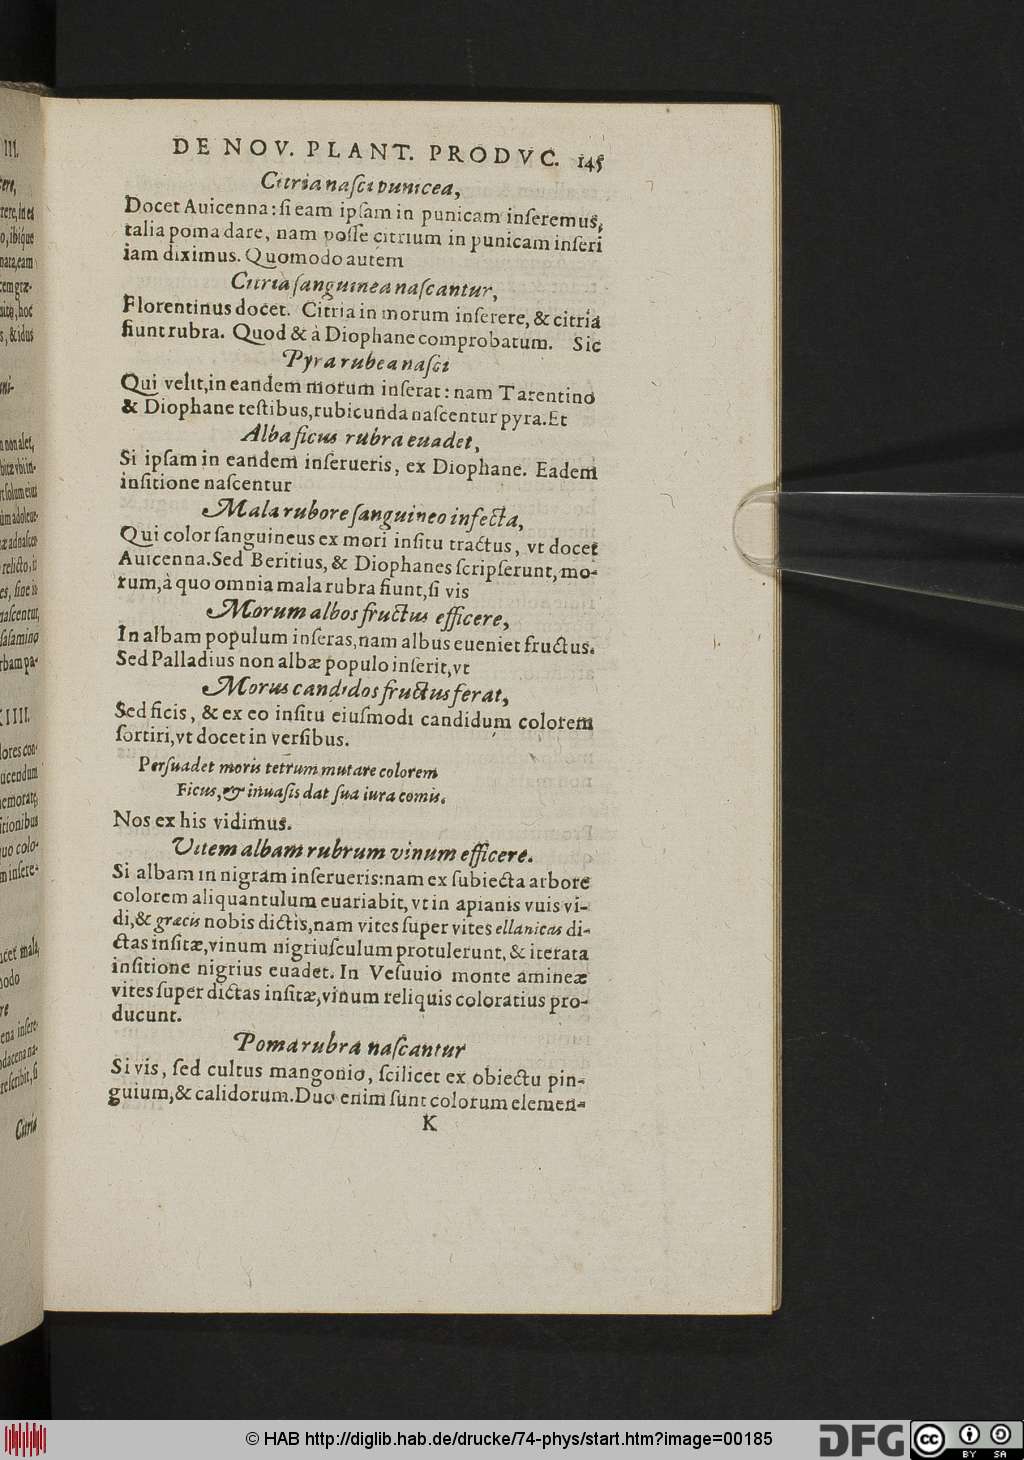 DE NOV. PLANT. PRODVC. 145
Citria nasci punicea,
Docet Auicenna: ſi eam ipſam in punicam inſeremus,
talia poma dare, nam poſſe citrium in punicam inſeri
iam diximus. Quomodo autem
Citria ſanguinea naſcantur,
Florentinus docet. Citria in morum inſerere, & citria
fiunt rubra. Quod & à Diophane comprobatum. Sic
Pyra rubea naſci
Qui velit, in eandem morum inſerat: nam Tarentino
& Diophane teſtibus, rubicunda naſcentur pyra. Et
Alba ficus rubra euadet,
Si ipſam in eandem inſerueris, ex Diophane. Eadem
inſitione naſcentur
Mala rubore ſanguineo infecta,
Qui color ſanguineus ex mori inſitu tractus, vt docet
Auicenna. Sed Beritius, & Diophanes ſcripſerunt, mo-
rum, à quo omnia mala rubra fiunt, ſi vis
Morum albos fructus efficere,
In albam populum inſeras, nam albus eueniet fructus.
Sed Palladius non albæ populo inſerit, vt
Morus candidos fructus ferat,
Sed ficis, & ex eo inſitu eiuſmodi candidum colorem
ſortiri, vt docet in verſibus.
Perſuadet moris tetrum mutare colorem
Ficus, & inuaſis dat ſua iura comis.
Nos ex his vidimus.
Vitem albam rubrum vinum efficere.
Si albam in nigram inſerueris: nam ex ſubiecta arbore
colorem aliquantulum euariabit, vt in apianis vuis vi-
di, & græcis nobis dictis, nam vites ſuper vites ellanicas di-
ctas inſitæ, vinum nigriuſculum protulerunt, & iterata
inſitione nigrius euadet. In Veſuuio monte amineæ
vites ſuper dictas inſitæ, vinum reliquis coloratius pro-
ducunt.
Poma rubra naſcantur
Si vis, ſed cultus mangonio, ſcilicet ex obiectu pin-
guium, & calidorum. Duo enim ſunt colorum elemen-
K
© HAB http://diglib.hab.de/drucke/74-phys/start.htm?image=00185
DFG
cc BY SA